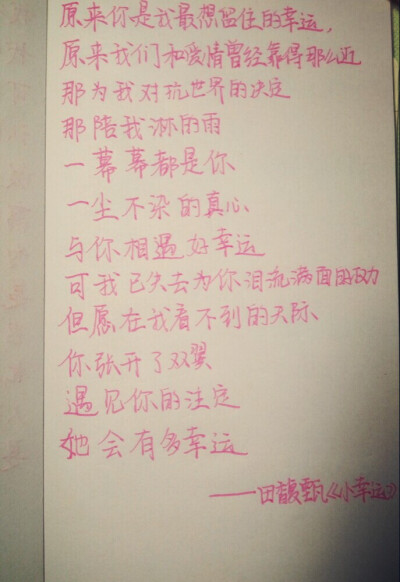 原来你是我最想留住的幸运,
原来我们和爱情曾经靠得那么近
那为我对抗世界的决定
那陪我淋的雨
一幕幕都是你
一尘不染的真心
与你相遇好幸运
可我已失去为你泪流满面的权力
但愿在我看不到的天际
你张开了双翼
遇见你的注定
她会有多幸运
——田馥甄《小幸运》